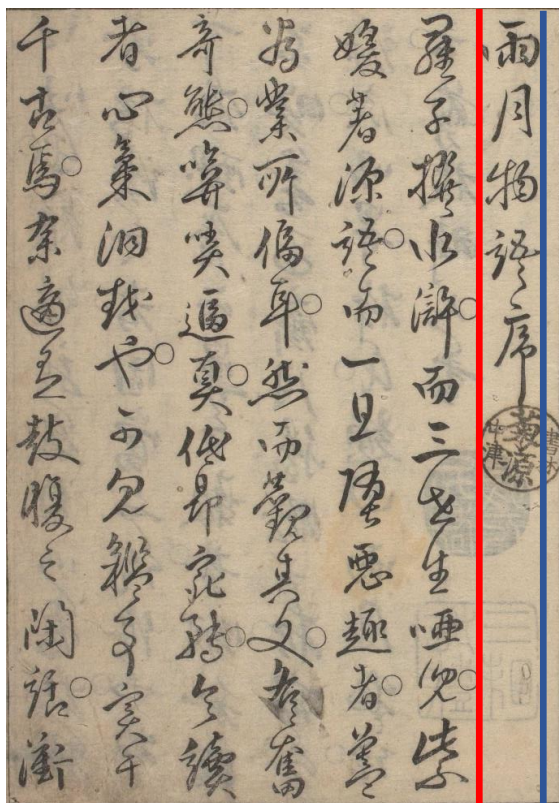 雨月物語序
書林
菊源
中津
羅子撰水滸。而三世生唖児。紫
媛著源語。而一旦堕悪趣者。蓋
為業所偪耳。然而観其文。各奮
奇態。唵哢逼真。低昂宛転。令読
者心気洞越也。可見鑑事実于
千古焉。余適有鼓腹之閑話。衝